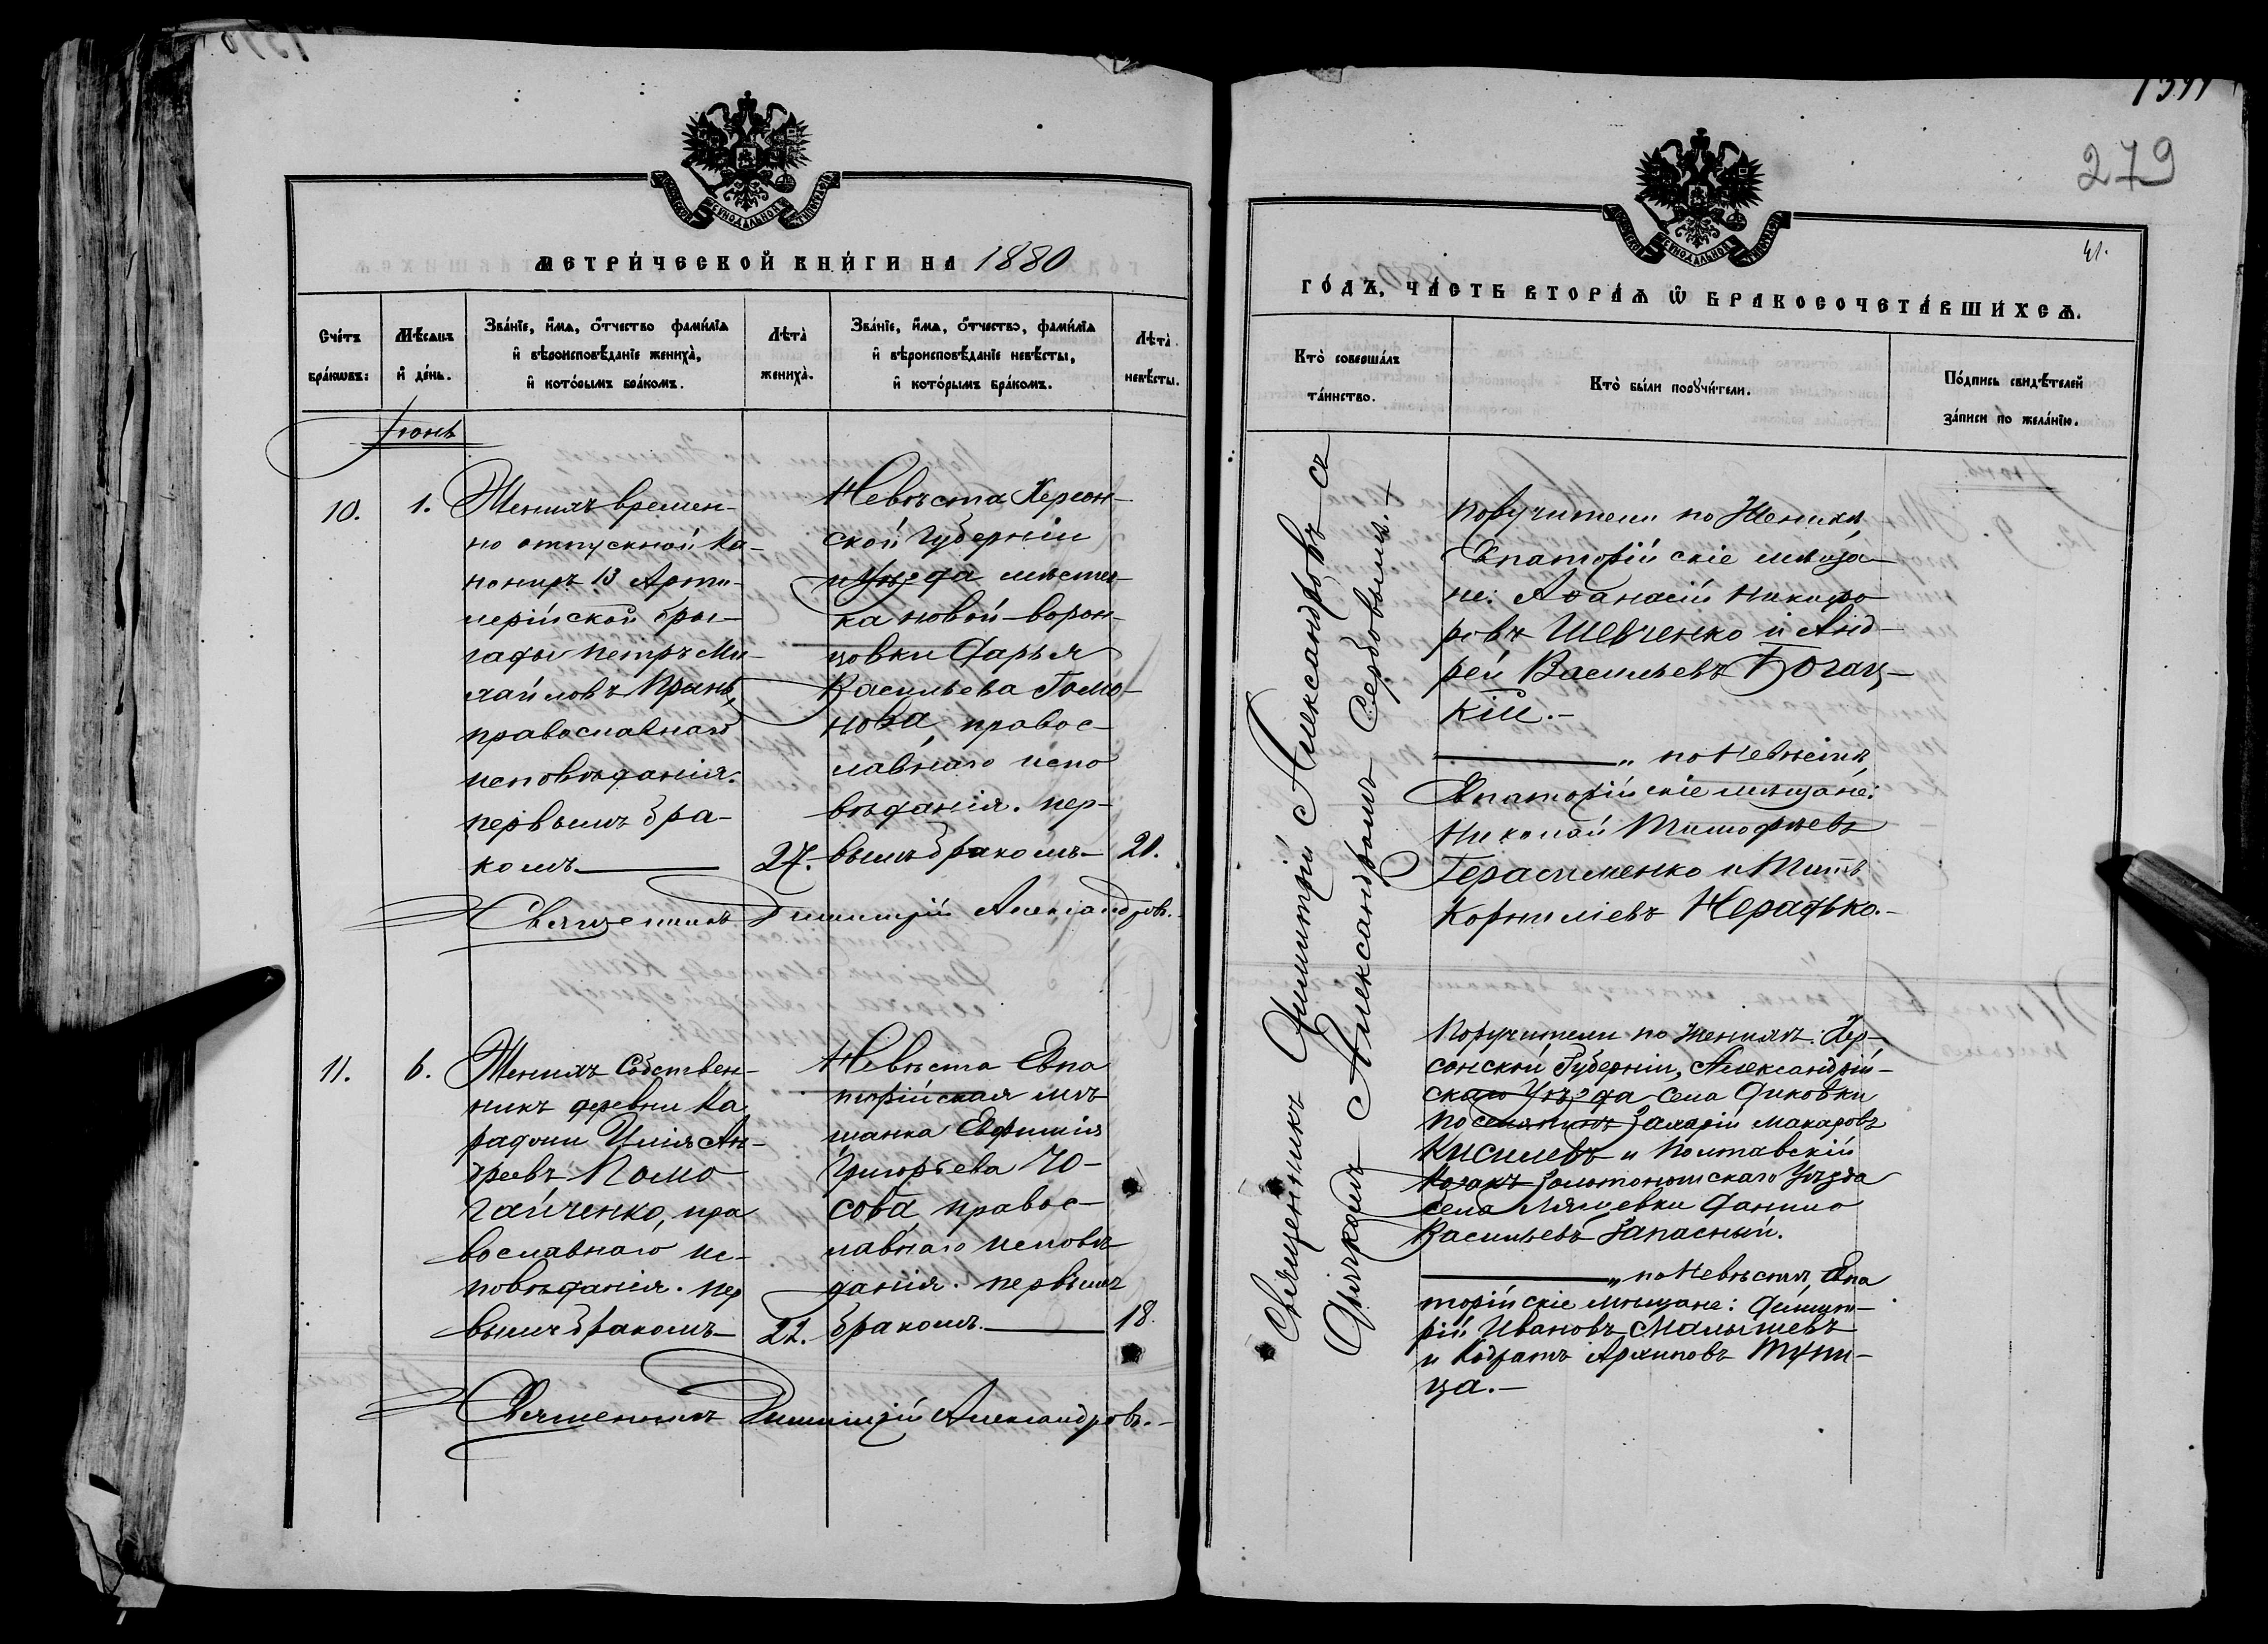 МЕТРИ́ЧЕСКОЙ КНИ́ГИ НА 1880
Сче́тъ
бра́кѡвъ:
Мѣ́сяцъ
и҆ де́нь.
Зва́нїе, и҆́мѧ, ѻ҆́тчество фами́лїѧ
и҆ вѣроисповѣ́данїе жениха̀,
и҆ кото́рымъ бра́комъ.
Лѣта̀
жениха̀.
Зва́нїе, и҆́мѧ, ѻ҆́тчество, фами́лїѧ
и҆ вѣроисповѣ́данїе невѣ́сты,
и҆ кото́рымъ бра́комъ.
Лѣта̀
невѣ́сты.
Іюнь
10.
1.
Женихъ времен-
но отпускной Ка-
ниръ 13 Арти-
лерійской бри-
гады Петръ Ми-
хайловъ
православнаго
исповѣданія.
первымъ бра-
комъ
27.
Невѣста Херсон-
ской Губерніи
и Уѣзда мѣстеч-
ка новой-ворон-
цовки Дарья
Васильева
нова, правос-
лавнаго испо
вѣданія. пер-
вымъ бракомъ
21.
Священникъ Димитрій Александровъ.
11.
6.
Женихъ Собствен-
никъ деревни Ка
радочи Илія Ан-
дреевъ Помо-
гайченко, пра
вославнаго ис-
повѣданія. пер
вымъ бракомъ
22.
Невѣста Евпа
торійская мѣ
щанка Евфимія
Григорьева Ю-
сова, правос-
лавнаго исповѣ
данія. первымъ
бракомъ.
18.
Священникъ Димитрій Александровъ.
279
41.
ГО́ДЪ, ЧА́СТЬ ВТОРА́Ѧ Ѡ҆ БРАКОСОЧЕТА́ВШИХСѦ.
Кто̀ соверша́лъ
та́инство.
Кто̀ бы́ли порꙋчи́тели.
По́дпись свидѣ́телей
за́писи по жела́нїю.
Священникъ Димитрій Александровъ съ
Дьячкомъ Александромъ Сербовымъ.
Поручители по Женихѣ
Евпаторійскіе мѣща-
не: Аѳанасій Никифо-
ровъ Шевченко и Анд-
рей Васильевъ Богац-
кій.
„ по Невѣстѣ
Евпаторійскіе мѣщане:
Николай Тимофѣевъ
Герасименко и Титъ
Корниліевъ Нерадько.
Поручители по женихѣ: Хер-
сонской Губерніи, Александрій-
скаго Уѣзда села Диковки
поселянинъ Захарій Макаровъ
Кисилевъ и Полтавскій
Козакъ Золотоношскаго Уѣзда
села Ляшевки Данило
Васильевъ Запасный.
„ по Невѣстѣ, Евпа
торійскіе мѣщане: Димит-
рій Ивановъ Малышевъ
и Кодратъ Архиповъ Тупи-
ца.